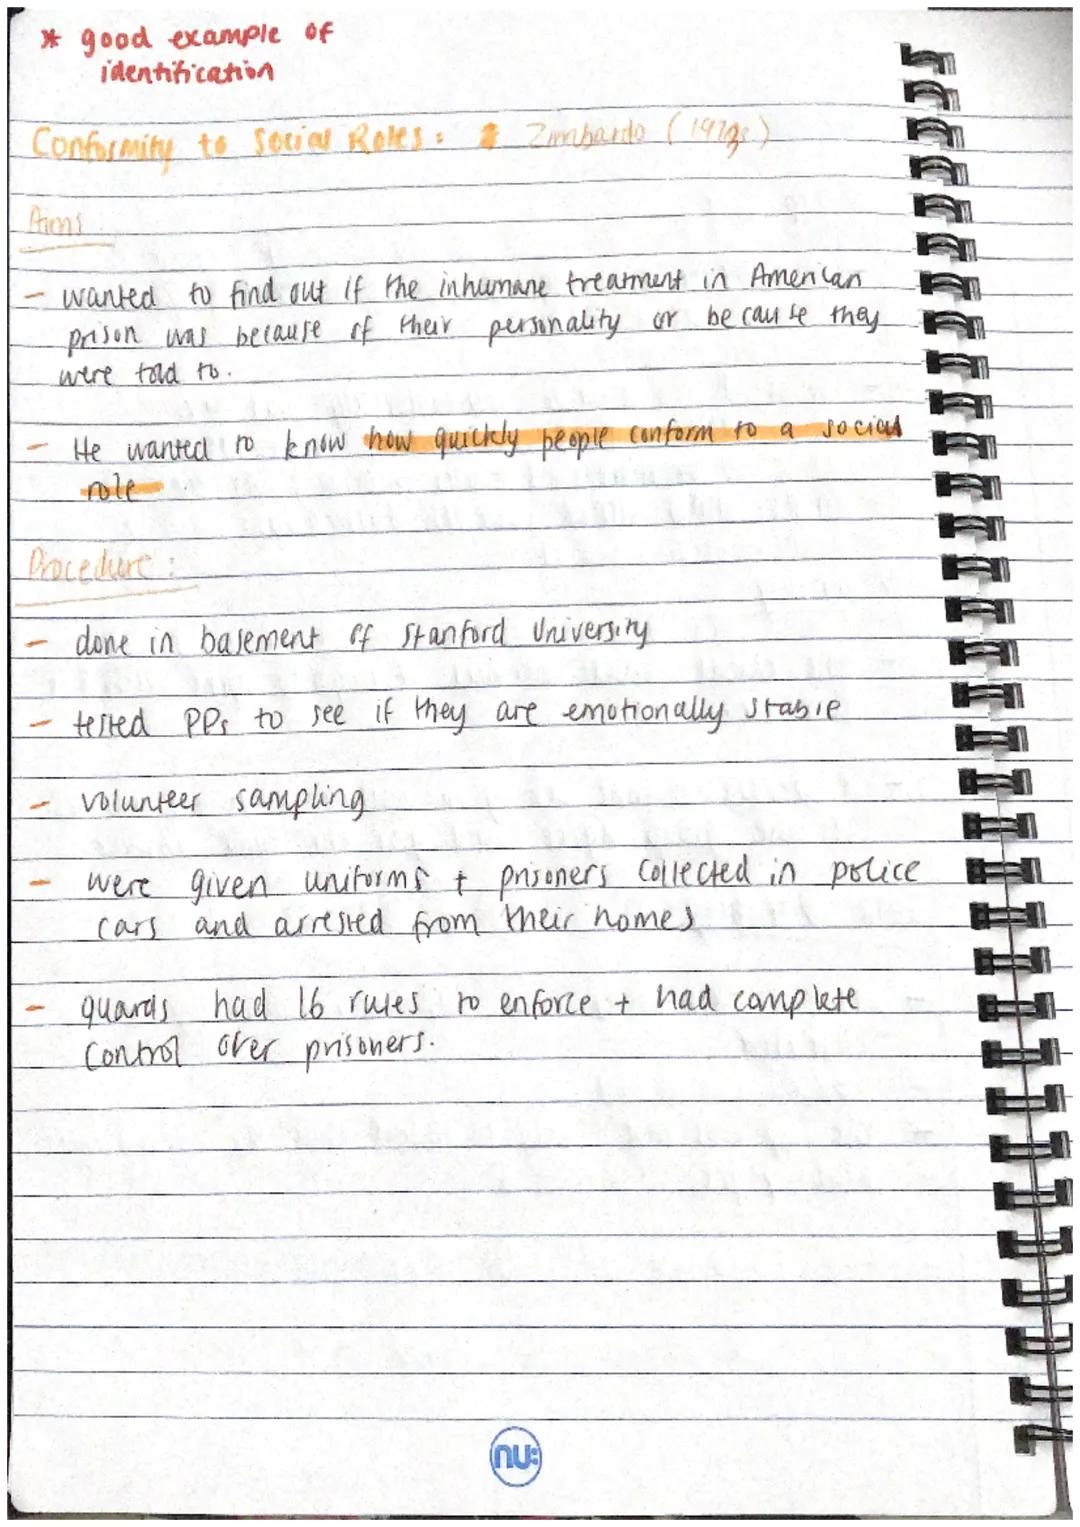 * good example of
identification
Conformity to Social Roles: Zimbardo
Aims
- wanted to find out if the inhumane treatment in American
prison was because of their personality or because they
were told to.
- He wanted to know how quickly people conform to a social
role
Procedure:
- done in basement of Stanford University
- tested PPs to see if they are emotionally stable
- volunteer sampling
- were given uniforms + prisoners collected in police
cars and arrested from their homes
- guards had 16 rules to enforce + had complete
control over prisoners.
nu: